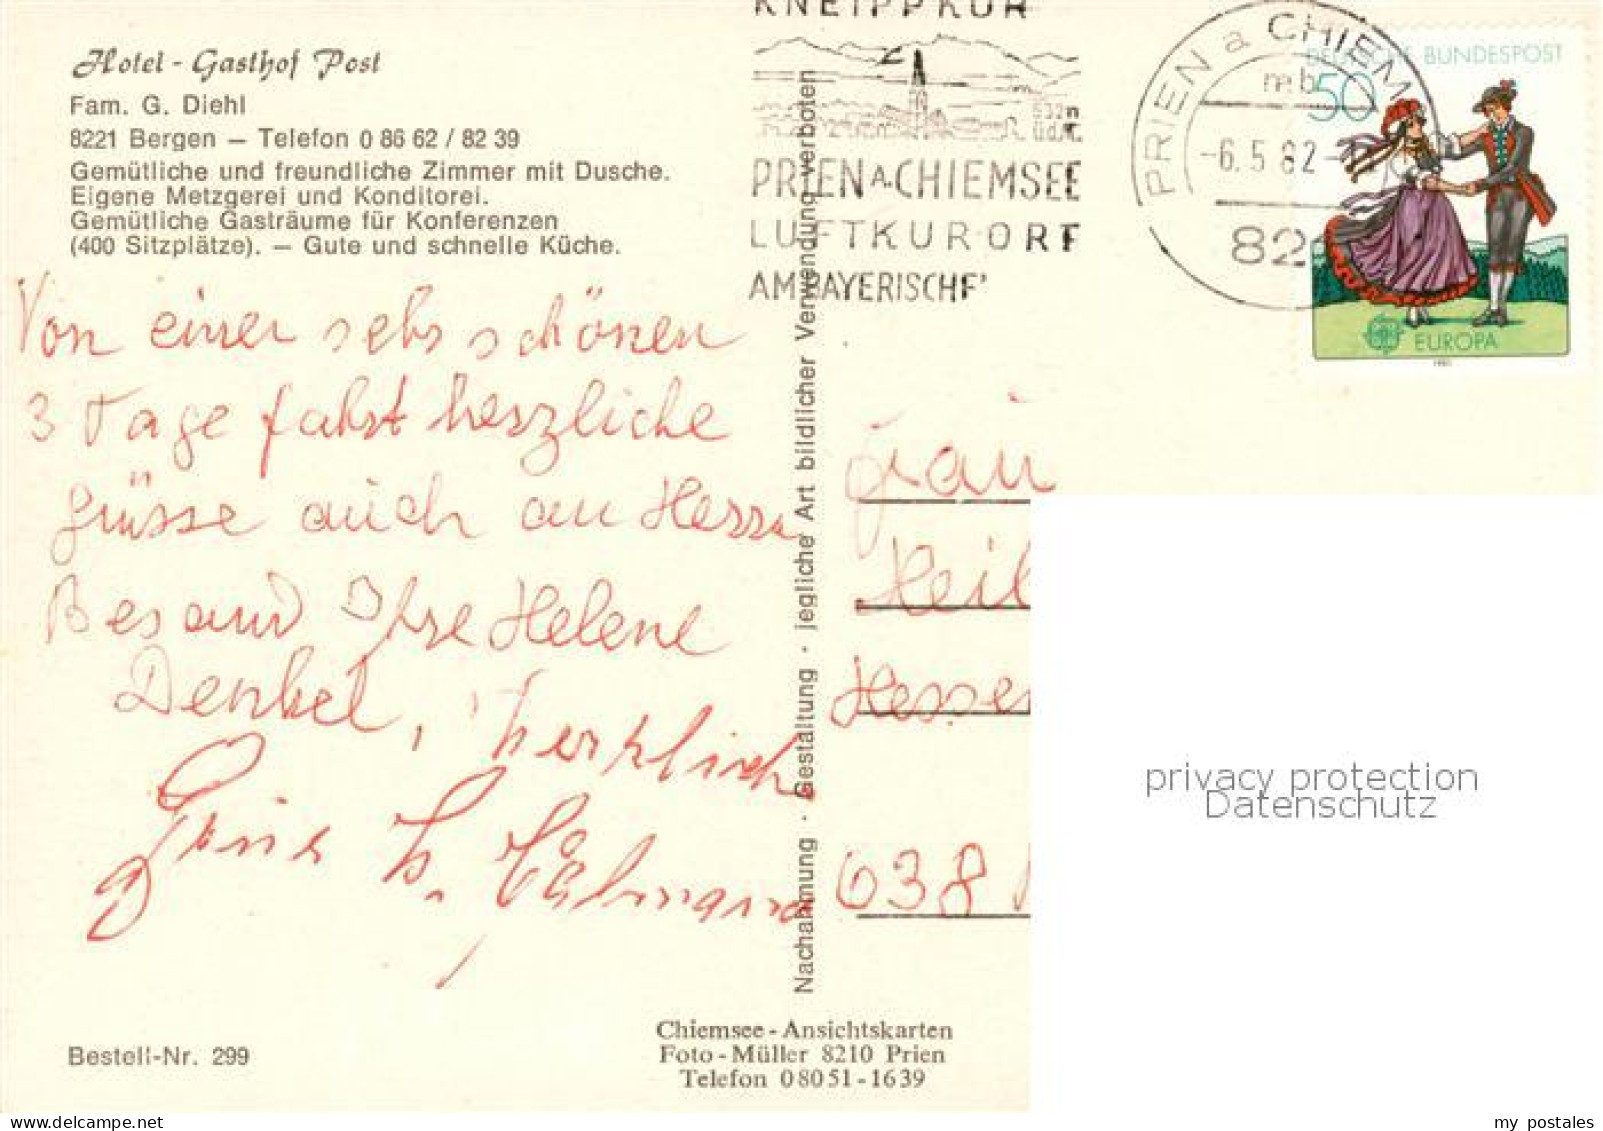 Hotel - Gasthof Post
Fam. G. Diehl
8221 Bergen — Telefon 0 86 62 / 82 39
Gemütliche und freundliche Zimmer mit Dusche.
Eigene Metzgerei und Konditorei.
Gemütliche Gasträume für Konferenzen
(400 Sitzplätze). — Gute und schnelle Küche.
KNEIPPKUR
532m
ü.d.M.
PRIEN A. CHIEMSEE
LUFTKURORT
AM BAYERISCHE
PRIEN a CHIEM
mb
-6.5.82-
82
DEUTSCHE BUNDESPOST
50
EUROPA
1981
Von einer sehr schönen
3 Tage fahrt herzliche
grüsse auch an Herrn
Bes and Ihre Helene
Denkel, herzlich
Nachahmung · Gestaltung · jegliche Art bildlicher Verwendung verboten
Frau
Heil
Hesse
638
privacy protection
Datenschutz
Bestell-Nr. 299
Chiemsee - Ansichtskarten
Foto - Müller 8210 Prien
Telefon 08051-1639
my postales